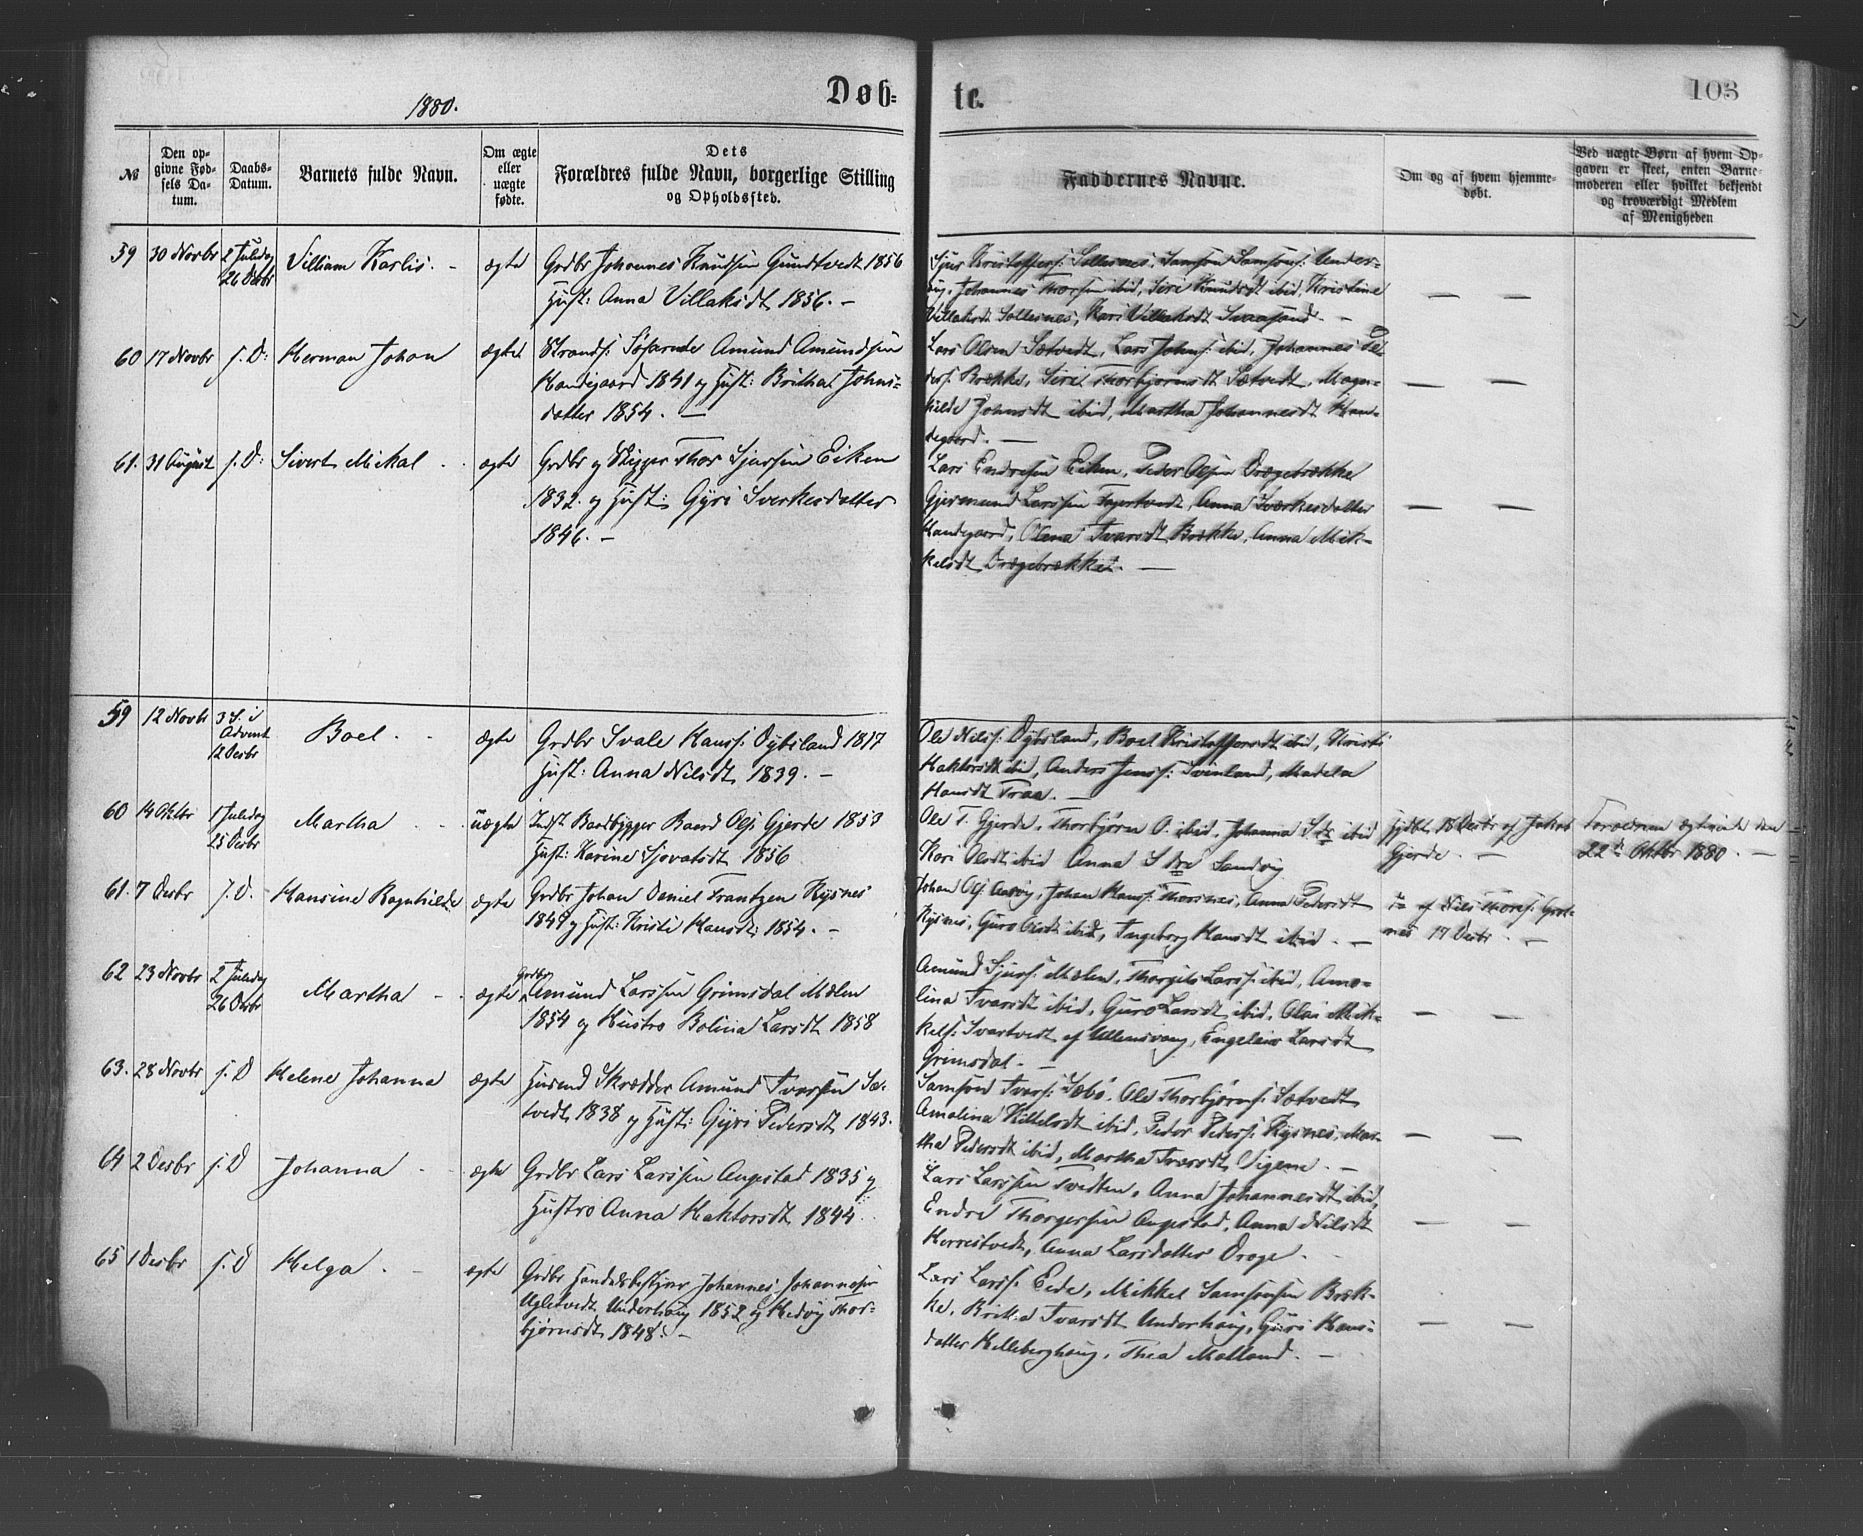 1880.
Døb=
te.
103
№
Den op-
givne Fød-
sels Da-
tum.
Daabs-
Datum.
Barnets fulde Navn.
Om ægte
eller
uægte
fødte.
Dets
Forældres fulde Navn, borgerlige Stilling
og Opholdssted.
Faddernes Navne.
Om og af hvem hjemme-
døbt.
Ved uægte Børn af hvem Op-
gaven er skeet, enten Barne-
moderen eller hvilket bekjendt
og troværdigt Medlem
af Menigheden
59 30 Novbr 2 Juledag
26 Desbr
Villiam Karlis. -
ægte
Grdbr Johannes Knudsen Gundtvedt 1856
Hust: Anna Villaksdt 1856. -
Sjur Kristoffers: Sollesnes, Samson Samsons: Under-
haug, Johannes Thorsen ibid, Siri Knudsdt ibid, Kristine
Villaksdt Sollesnes, Kari Villaksdt Svaasand. -
— —
60 17 Novbr s. D: Herman Johan
ægte
Strands: Søfarende Amund Amundsen
Handegaard 1841 og Hust: Britha Johns-
datter 1854. —
Lars Olsen Sætvedt, Lars Johns: ibid, Johannes Pe-
ders: Brække, Siri Thorbjørnsdt Sætvedt, Magn-
hilde Johnsdt ibid, Martha Johannesdt Han-
degaard. —
— —
61. 31 August s. D: Sivert Mikal
ægte
Grdbr og Skipper Thor Sjursen Eiken
1832. og Hust: Gyri Sverkesdatter
1846. -
Lars Endresen Eiken, Peder Olsen Drægebrække
Gjermund Larssen Fagertvedt, Anna Sverkesdatter
Handegaard, Olena Ivarsdt Brække, Anna Mik-
kelsdt Drægebrække. —
— —
59 12 Novbr 3 S. i
Advent
12 Desbr
Boel
ægte
Grdbr Svale Hanss: Dybsland 1817
Hust: Anna Nilsdt 1839. -
Ole Nilss: Dybsland, Boel Kristoffersdt ibid, Kristi
Haktorsdt ibid, Anders Jenss: Svinland, Madela
Hansdt Traa. —
60 14 Oktbr 1 Juledag
25 Desbr
Martha
uægte
Indst Baadbygger Baard Ols: Gjerde 1853
Hust: Karine Sjovatsdt 1856
Ole T. Gjerde, Thorbjørn O. ibid, Johanna S. dtr ibid
Kari Olsdt ibid Anna S. dtr Sandvig
hjdbt 18 Desbr af Jakob
Gjerde. —
Forældrene ægteviede den
22de Oktbr 1880. —
61. 7 Desbr s. D. Hansine Ragnhilde
ægte
Grdbr Johan Daniel Frantzen Rysnes
1849 og Hust: Kristi Hansdt: 1854. -
Johan Ols: Aasvig, Johan Hanss: Thorsnes, Anna Pedersdt
Rysnes, Guro Olsdt ibid, Ingeborg Hansdt ibid. -
do af Nils Thores: Grot-
nes 17 Desbr. -
62 23 Novbr 2 Juledag
26 Desbr
Martha -
ægte
Grdbr
Amund Larssen Grimsdal Mælen
1854 og Hustro Bolina Larsdt 1858
Amund Sjurs: Mælen, Thorgils Larss: ibid, Ama-
lina Ivarsdt ibid, Guro Larsdt ibid, Olai Mik-
kels: Svartvedt af Ullensvang, Engeleiv Larsdt
Grimsdal. -
— —
63. 28 Novbr s. D Helene Johanna
ægte
Husmd Skrædder Amund Ivarsen Sæ-
tvedt 1838 og Hust: Gyri Pedersdt 1843.
Samson Ivers: Sæbø, Ole Thorbjørns: Sætvedt
Amalina Kittelsdt ibid, Peder Peders: Rysnes, Mar-
tha Pedersdt ibid, Martha Ivarsdt Vigene. -
— —
64 2 Desbr s. D Johanna
ægte
Grdbr Lars Larssen Augestad 1835 og
Hustro Anna Haktorsdt 1844.
Lars Larssen Tvedten, Anna Johannesdt ibid,
Endre Thorgersen Augestad, Anna Nilsdt
Herrestvedt, Anna Larsdatter Droge.
— —
65 1 Desbr s. D Helga
ægte
Grdbr Handelsbestyrer Johannes Johannesen
Ugletvedt Underhaug 1852 og Hedvig Thor-
bjørnsdt 1848. -
Lars Larss: Eide, Mikkel Samsonsen Bræk-
ke, Britha Ivarsdt Underhaug, Guri Hans-
datter Helleberghaug, Thea Malland. -
— —